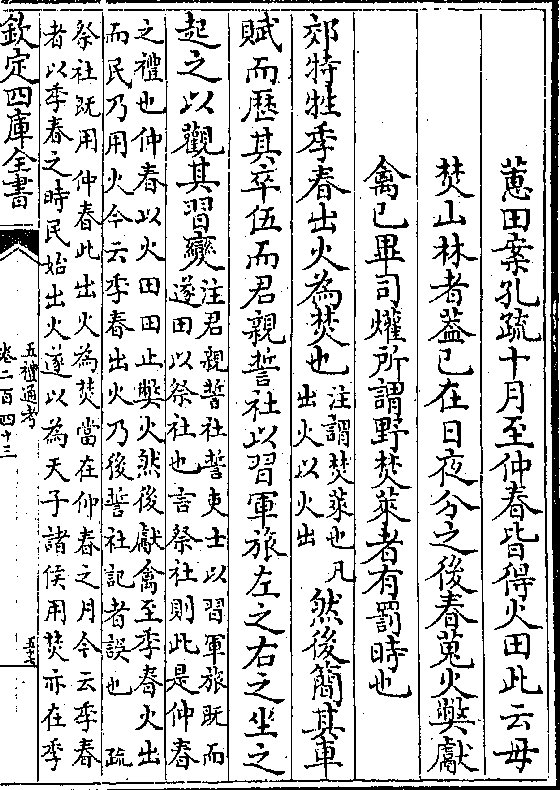 蕙田案孔疏十月至仲春皆得火田此云毋
焚山林者蓋已在日夜分之後春蒐火弊獻
禽已畢司爟所謂野焚萊者有罰時也
郊特牲季春出火為焚也注謂焚萊也凡出火以火出然後簡其車
賦而歴其卒伍而君親誓社以習軍旅左之右之坐之
起之以觀其習變注君親誓社誓吏士以習軍旅既而遂田以祭社也言祭社則此是仲春
之禮也仲春以火田田止弊火然後獻禽至季春火出
而民乃用火今云季春出火乃後誓社記者誤也 疏
祭社既用仲春此出火為焚當在仲春之月今云季春
者以季春之時民始出火遂以為天子諸侯用焚亦在季
欽定四庫全書
五禮通考
卷二百四十三